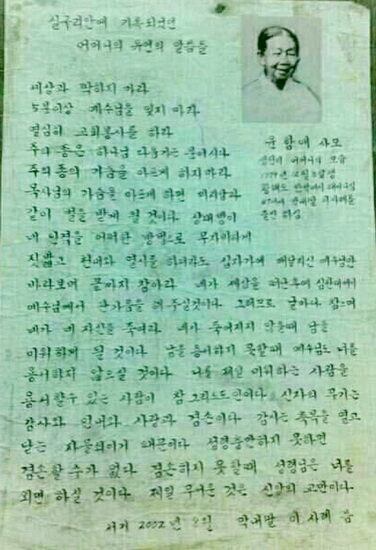 실꾸리안에 기록되었던
어머니의 유언의 말씀들
세상과 짝하지 마라
5분이상 예수님을 잊지 마라
열심히 교회봉사를 하라
주의 종은 하나님 다음가는 분이시다
주의 종의 가슴을 아프게 하지 마라
목사님의 가슴을 아프게 하면 미리암과
같이 벌을 받게 될 것이다 상대방이
네 인격을 어떠한 방법으로 무자비하게
짓밟고 천대와 멸시를 하더라도 십자가에 매달리신 예수님만
바라보며 끝까지 참아라 네가 세상을 떠난후에 심판대에서
예수님께서 판가름을 해 주실것이다 그러므로 날마다 참으며
네가 네 자신을 죽여라 네가 죽어지지 않을때 남을
미워하게 될 것이다 남을 용서하지 못할때 예수님도 너를
용서하지 않으실 것이다 나를 제일 미워하는 사람을
용서할수 있는 사람이 참 그리스도인이다 신자의 무기는
감사와 인내와 사랑과 겸손이다 감사는 축복을 열고
닫는 자물쇠이기 때문이다 성령충만하지 못하면
겸손할 수가 없다 겸손하지 못할때 성령님은 너를
외면 하실 것이다 제일 무서운 것은 신앙의 교만이다
서기 2002년 9월 막내딸 이 사례 씀
윤 함애 사모
어머니의 모습